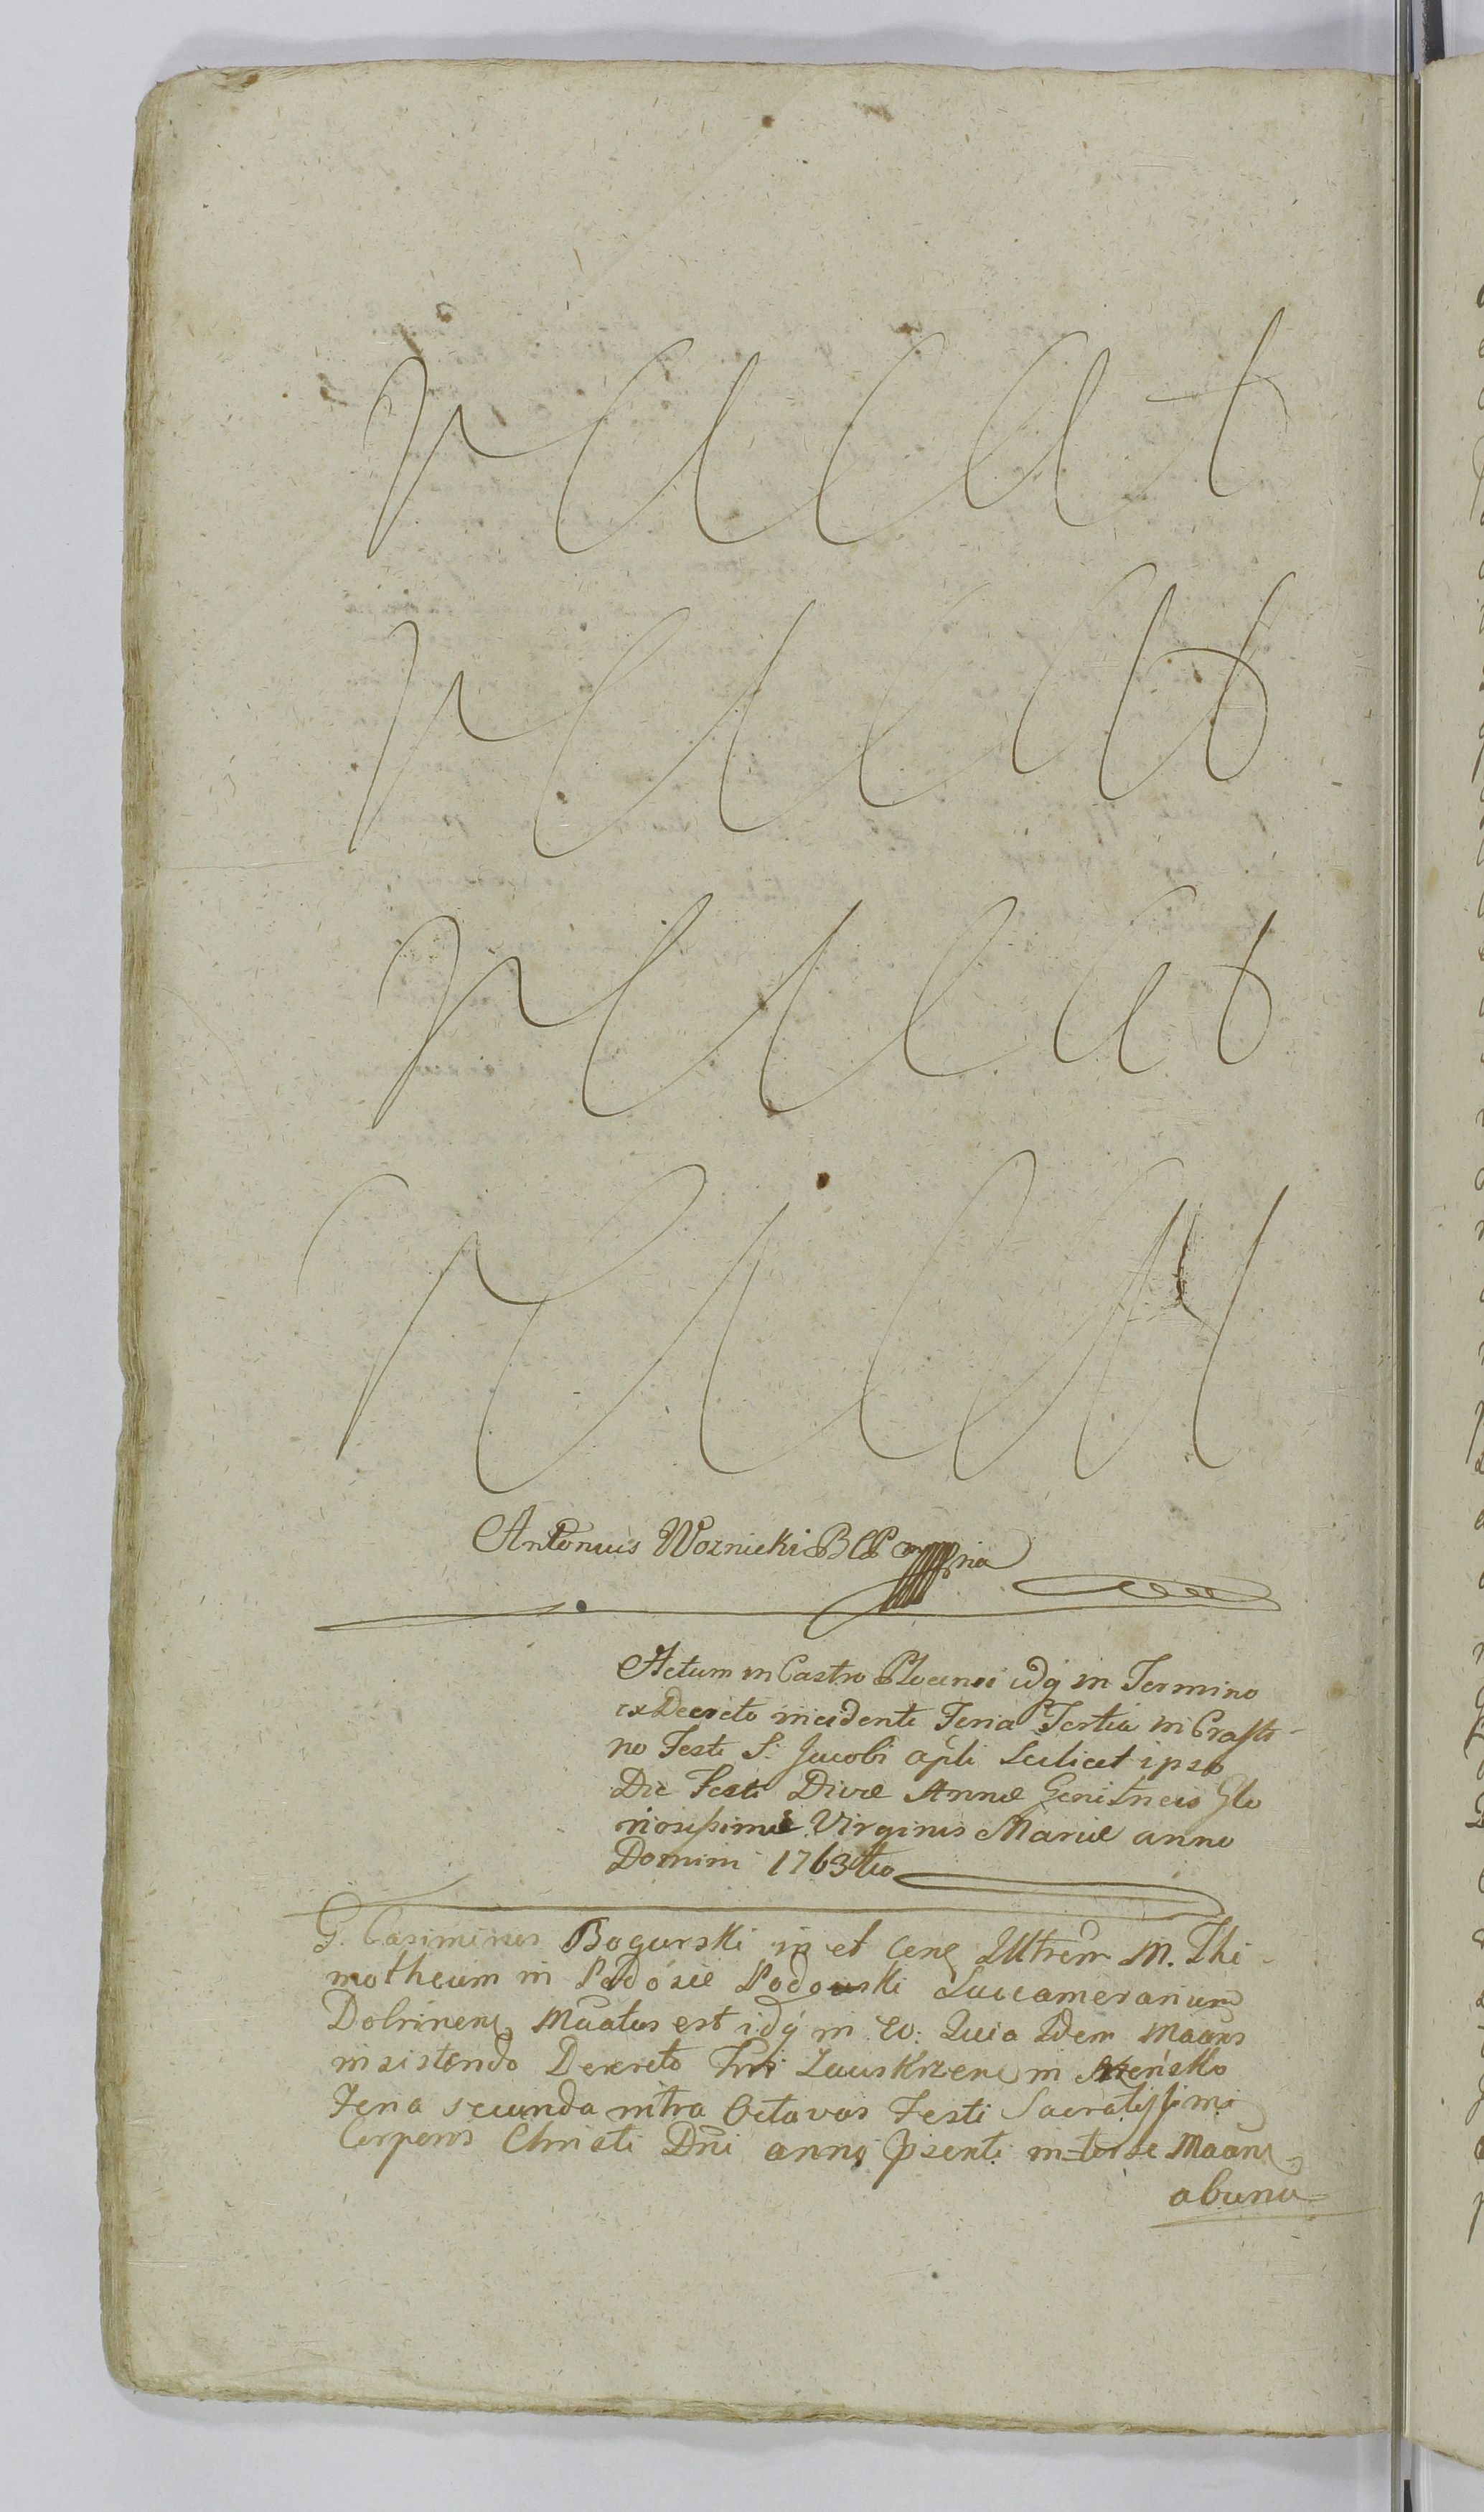 vacat
vacat
vacat
vacat
Antonius Woznicki B C P mppria
Actum in Castro Plocensi idq in Termino
ex Decreto incidenti Feria Tertia in Crasti-
no Festi S. Jacobi apli Scilicet ipso
Die Festi Divæ Annæ Genitricis Glo
riosissimæ Virginis Mariæ anno
Domini 1763tio
G. Casimirus Bogurski in et Cene Illtrem M. Thi-
motheum in Podosie Podoski Succamerarium
Dobrinens Maatus est idq in eo. Quia Idem Maans
insistendo Decreto Fori Zauskrzens in
Feria secunda intra Octavas Festi Sacratissimi
Corporis Christi Dni anni psentis inter se Maans